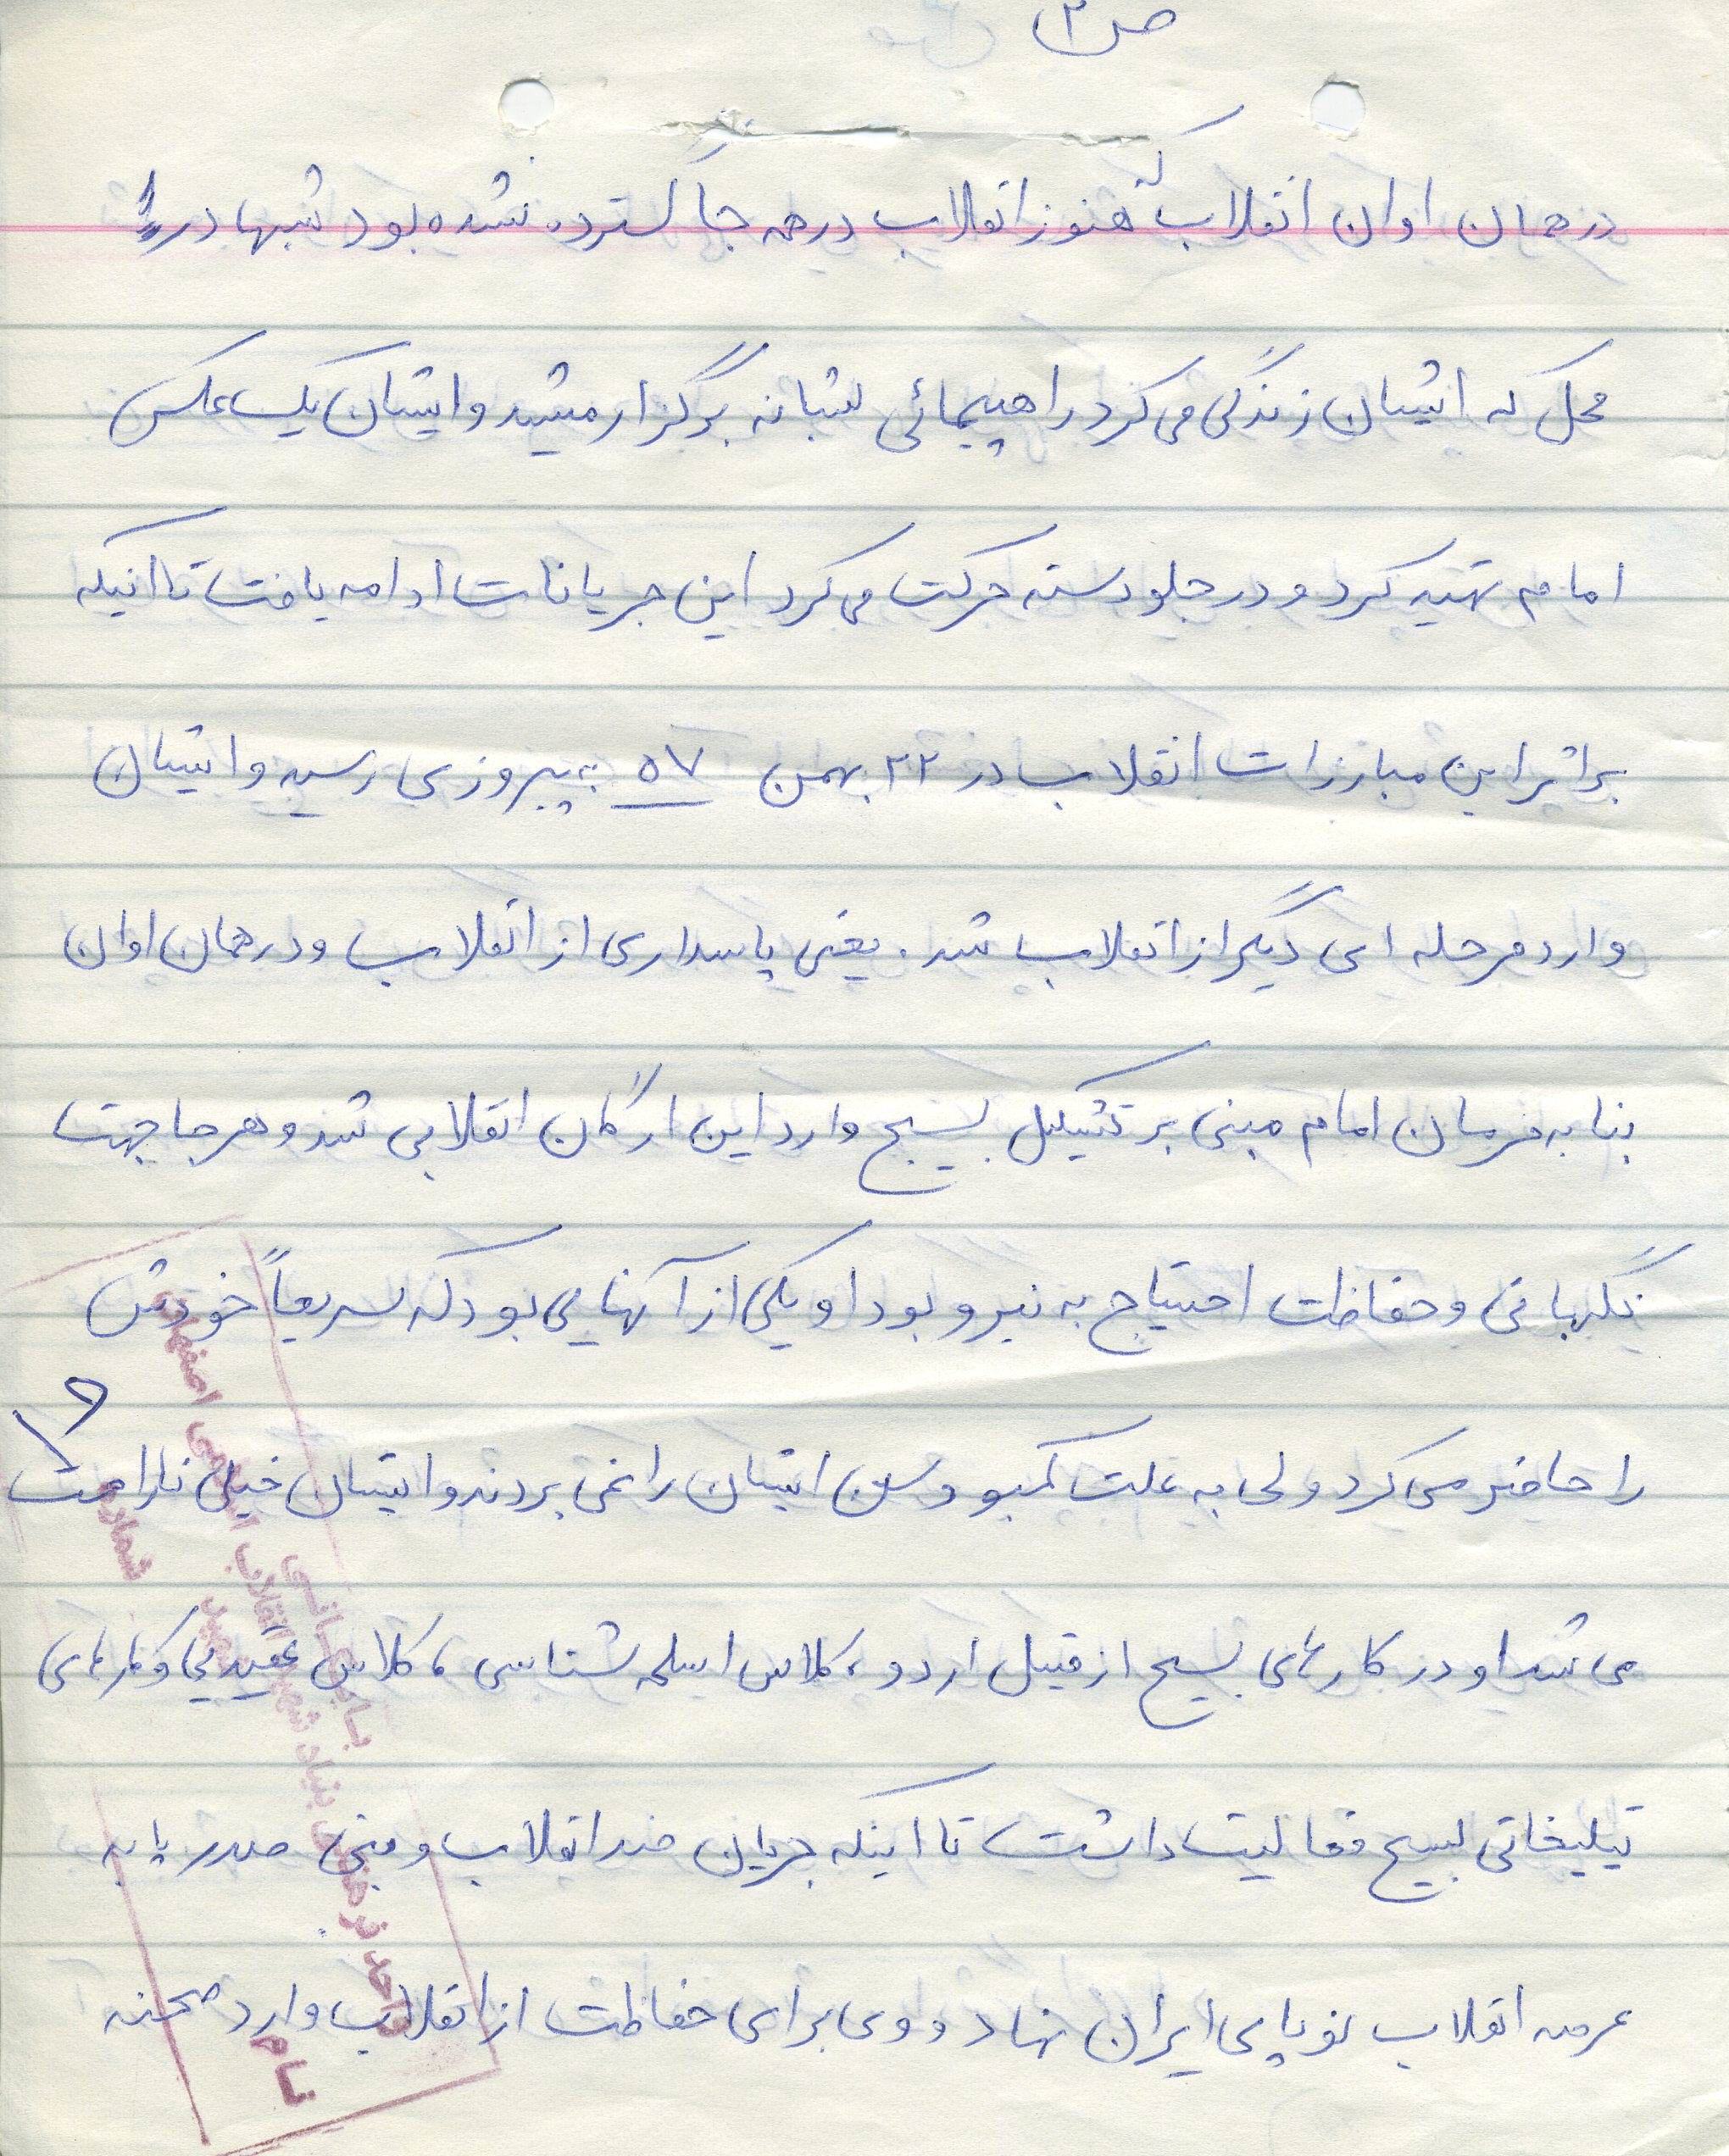 ص ۳
در همان اوان انقلاب که هنوز انقلاب در همه جا گسترده نشده بود شبها در
محل که ایشان زندگی می کرد راهپیمائی شبانه برگزار میشد و ایشان یک عکس
امام تهیه کرد و در جلو دسته حرکت می کرد این جریانات ادامه یافت تا اینکه
براثر این مبارزات انقلاب در ۲۲ بهمن ۵۷ به پیروزی رسید و ایشان
وارد مرحله ای دیگر از انقلاب شد. یعنی پاسداری از انقلاب و در همان اوان
بنا به فرمان امام مبنی بر تشکیل بسیج وارد این ارگان انقلابی شد و هر جا جهت
نگهبانی و حفاظت احتیاج به نیرو بود او یکی از آنهایی بود که سریعاً خودش
را حاضر می کرد ولی به علت کمبود سن ایشان را نمی بردند و ایشان خیلی ناراحت
می شد او در کارهای بسیج از قبیل اردو، کلاس اسلحه شناسی، کلاس عقیدتی و کارهای
تبلیغاتی بسیج فعالیت داشت تا اینکه جریان ضد انقلاب و بنی صدر پا به
عرصه انقلاب نوپای ایران نهاد و وی برای حفاظت از انقلاب وارد صحنه
بنیاد شهید انقلاب اسلامی اصفهان
شماره
نام